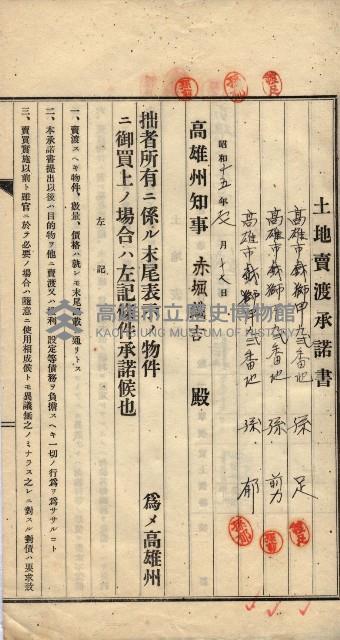 土地賣渡承諾書
高雄市戲獅甲九弍番地 孫 足
高雄市戲獅甲九弍番地 孫 剪
高雄市戲獅甲九弍番地 孫 郁
昭和十五年 月十 日
高雄州知事 赤堀鐵吉 殿
拙者所有ニ係ル末尾表示ノ物件 爲メ高雄州
ニ御買上ノ場合ハ左記條件承諾候也
左記
一、賣渡スヘキ物件、數量、價格ハ就レモ末尾記載ノ通リトス
二、本承諾書提出以後ハ目的物ヲ他ニ賣渡又ハ權利ノ設定等債務ヲ負擔スヘキ一切ノ行爲ヲ爲ササルコト
三、賣買實施以前ト雖官ニ於テ必要ノ場合ハ隨意ニ使用相成候トモ異議無之ノミナラス之レニ對スル對價ハ要求致
高雄市立歷史博物館
KAOHSIUNG MUSEUM OF HISTORY